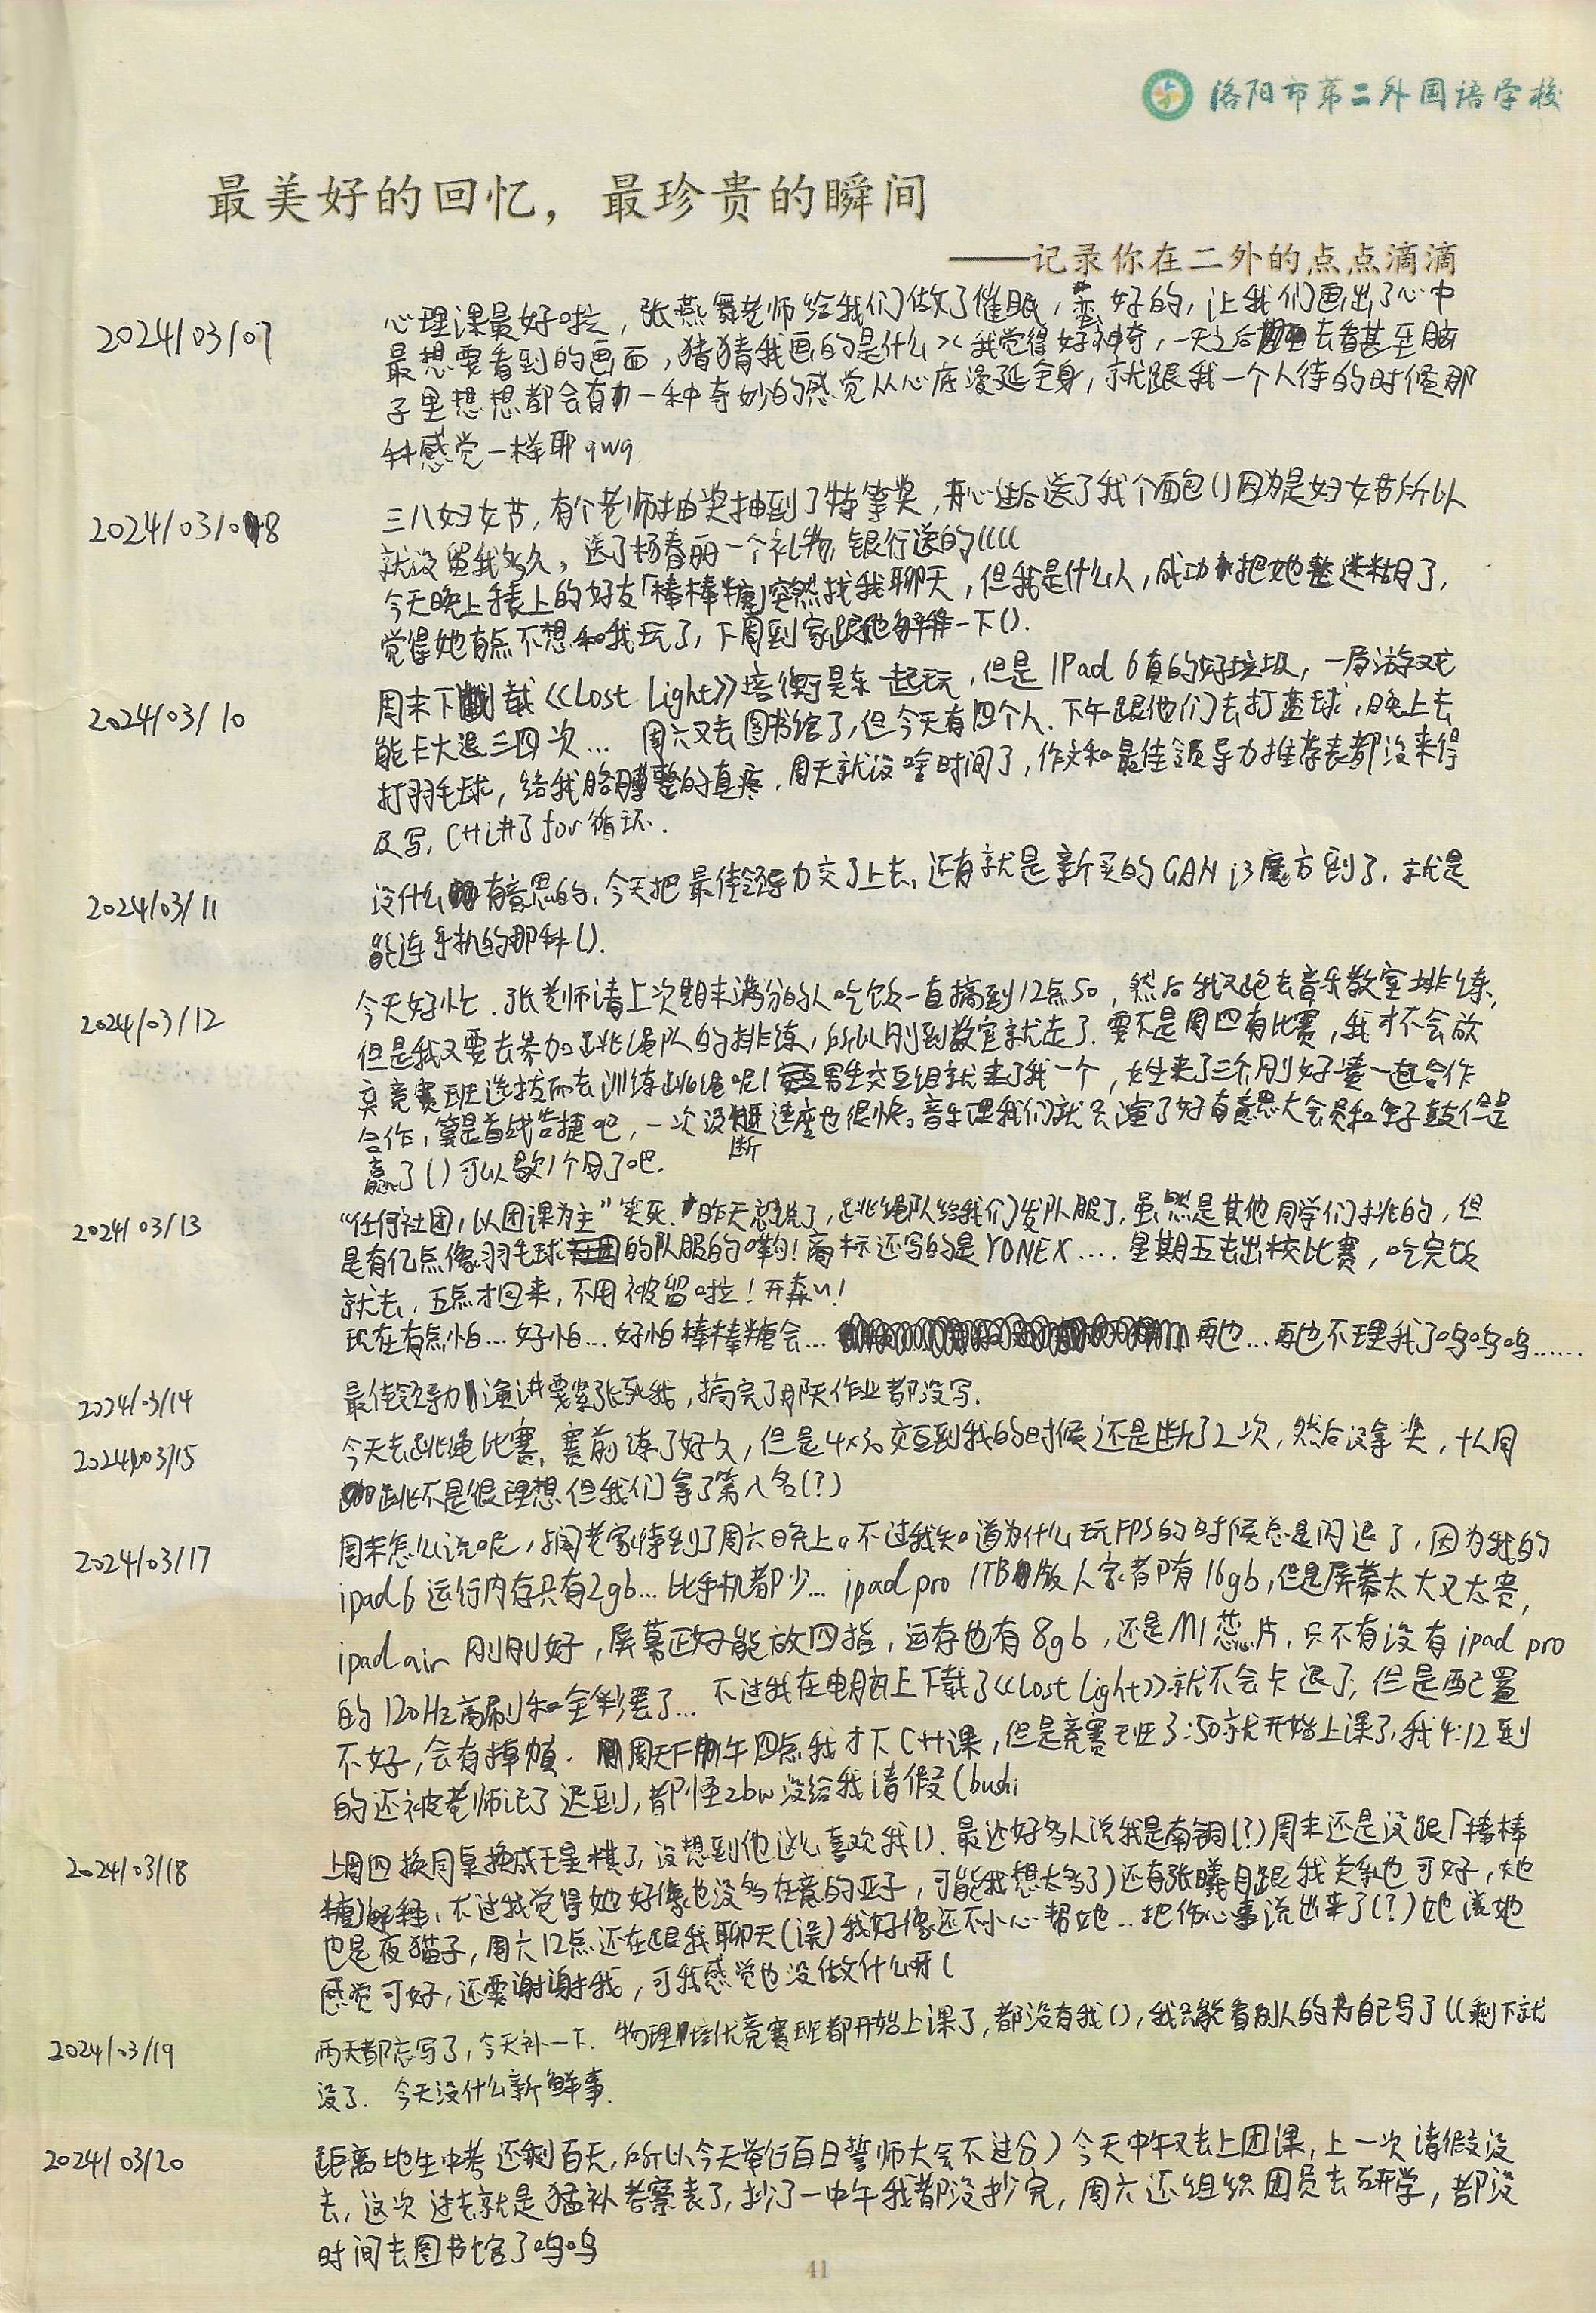 洛阳市第二外国语学校
最美好的回忆，最珍贵的瞬间
——记录你在二外的点点滴滴
2024/03/07 心理课最好啦，张燕舞老师给我们做了催眠，蛮好的，让我们画出了心中
最想要看到的画面，猜猜我画的是什么>< 我觉得好神奇，一天之后去看甚至脑
子里想想都会有一种奇妙的感觉从心底漫延全身，就跟我一个人待的时候那
种感觉一样耶qwq
2024/03/08 三八妇女节，有个老师抽奖抽到了特等奖，开心进后送了我个面包()因为是妇女节所以
就没留我多久，送了杨春丽一个礼物，银行送的((((
今天晚上手表上的好友「棒棒糖」突然找我聊天，但我是什么人，成功把她整迷糊了，
觉得她有点不想和我玩了，下周到家跟她解释一下().
2024/03/10 周末下载《Lost Light》培衡昊东一起玩，但是IPad 6真的好垃圾，一局游戏
能卡大退三四次... 周六又去图书馆了，但今天有四个人.下午跟他们去打篮球，晚上去
打羽毛球，给我胳膊整的直疼.周天就没啥时间了，作文和最佳领导力推荐表都没来得
及写，C++讲了for循环.
2024/03/11 没什么有意思的，今天把最佳领导力交了上去，还有就是新买的GAN i3魔方到了，就是
能连手机的那种().
2024/03/12 今天好忙.张老师请上次期末满分的人吃饭一直搞到12点50，然后我又跑去音乐教室排练，
但是我又要去参加跳绳队的排练，所以刚到教室就走了.要不是周四有比赛，我才不会放
弃竞赛班选拔而去训练跳绳呢！男生交互组就来了我一个，女生来了三个刚好凑一起合作
合作，算是首战告捷吧，一次没断速度也很快。音乐课我们就只演了好有意思大会员和架子鼓但是
赢了()可以歇1个月了吧.
2024/03/13 “任何社团，以团课为主”笑死.昨天忘说了，跳绳队给我们发队服了，虽然是其他同学们挑的，但
是有亿点像羽毛球的队服的喲！商标还写的是YONEX....星期五去出校比赛，吃完饭
就去，五点才回来，不用被留啦！开森ν！
现在有点怕...好怕...好怕棒棒糖会...再也...再也不理我了呜呜呜......
2024/03/14 最佳领导力演讲要紧张死我，搞完了那天作业都没写.
2024/03/15 今天去跳绳比赛，赛前练了好久，但是4x30交互到我的时候还是断了2次，然后没拿奖，十人同
跳不是很理想但我们拿了第八名(?)
2024/03/17 周末怎么说呢，搁老家待到了周六晚上。不过我知道为什么玩FPS的时候总是闪退了，因为我的
ipad6运行内存只有2gb...比手机都少...ipad pro 1TB版人家都有16gb，但是屏幕太大又太贵，
ipad air 刚刚好，屏幕正好能放四指，运存也有8gb，还是M1芯片，只不有没有ipad pro
的120Hz高刷和全彩罢了...不过我在电脑上下载了《Lost Light》就不会卡退了，但是配置
不好，会有掉帧.周天下午四点我才下C++课，但是竞赛班3:50就开始上课了，我4:12到
的还被老师记了迟到，都怪zbw没给我请假(bushi
2024/03/18 上周四换同桌换成王星棋了，没想到他这么喜欢我().最近好多人说我是南铜(?)周末还是没跟「棒棒
糖」解释，不过我觉得她好像也没多在意的亚子，可能我想太多了)还有张曦月跟我关系也可好，她
也是夜猫子，周六12点还在跟我聊天(误)我好像还不小心帮她..把伤心事说出来了(?)她说她
感觉可好，还要谢谢我，可我感觉也没做什么呀(
2024/03/19 两天都忘写了，今天补一下.物理培优竞赛班都开始上课了，都没有我()，我只能看别人的为自己写了((剩下就
没了.今天没什么新鲜事.
2024/03/20 距离地生中考还剩百天，所以今天举行百日誓师大会不过分)今天中午又去上团课，上一次请假没
去，这次过去就是猛补考察表了，抄了一中午我都没抄完，周六还组织团员去研学，都没
时间去图书馆了呜呜
41